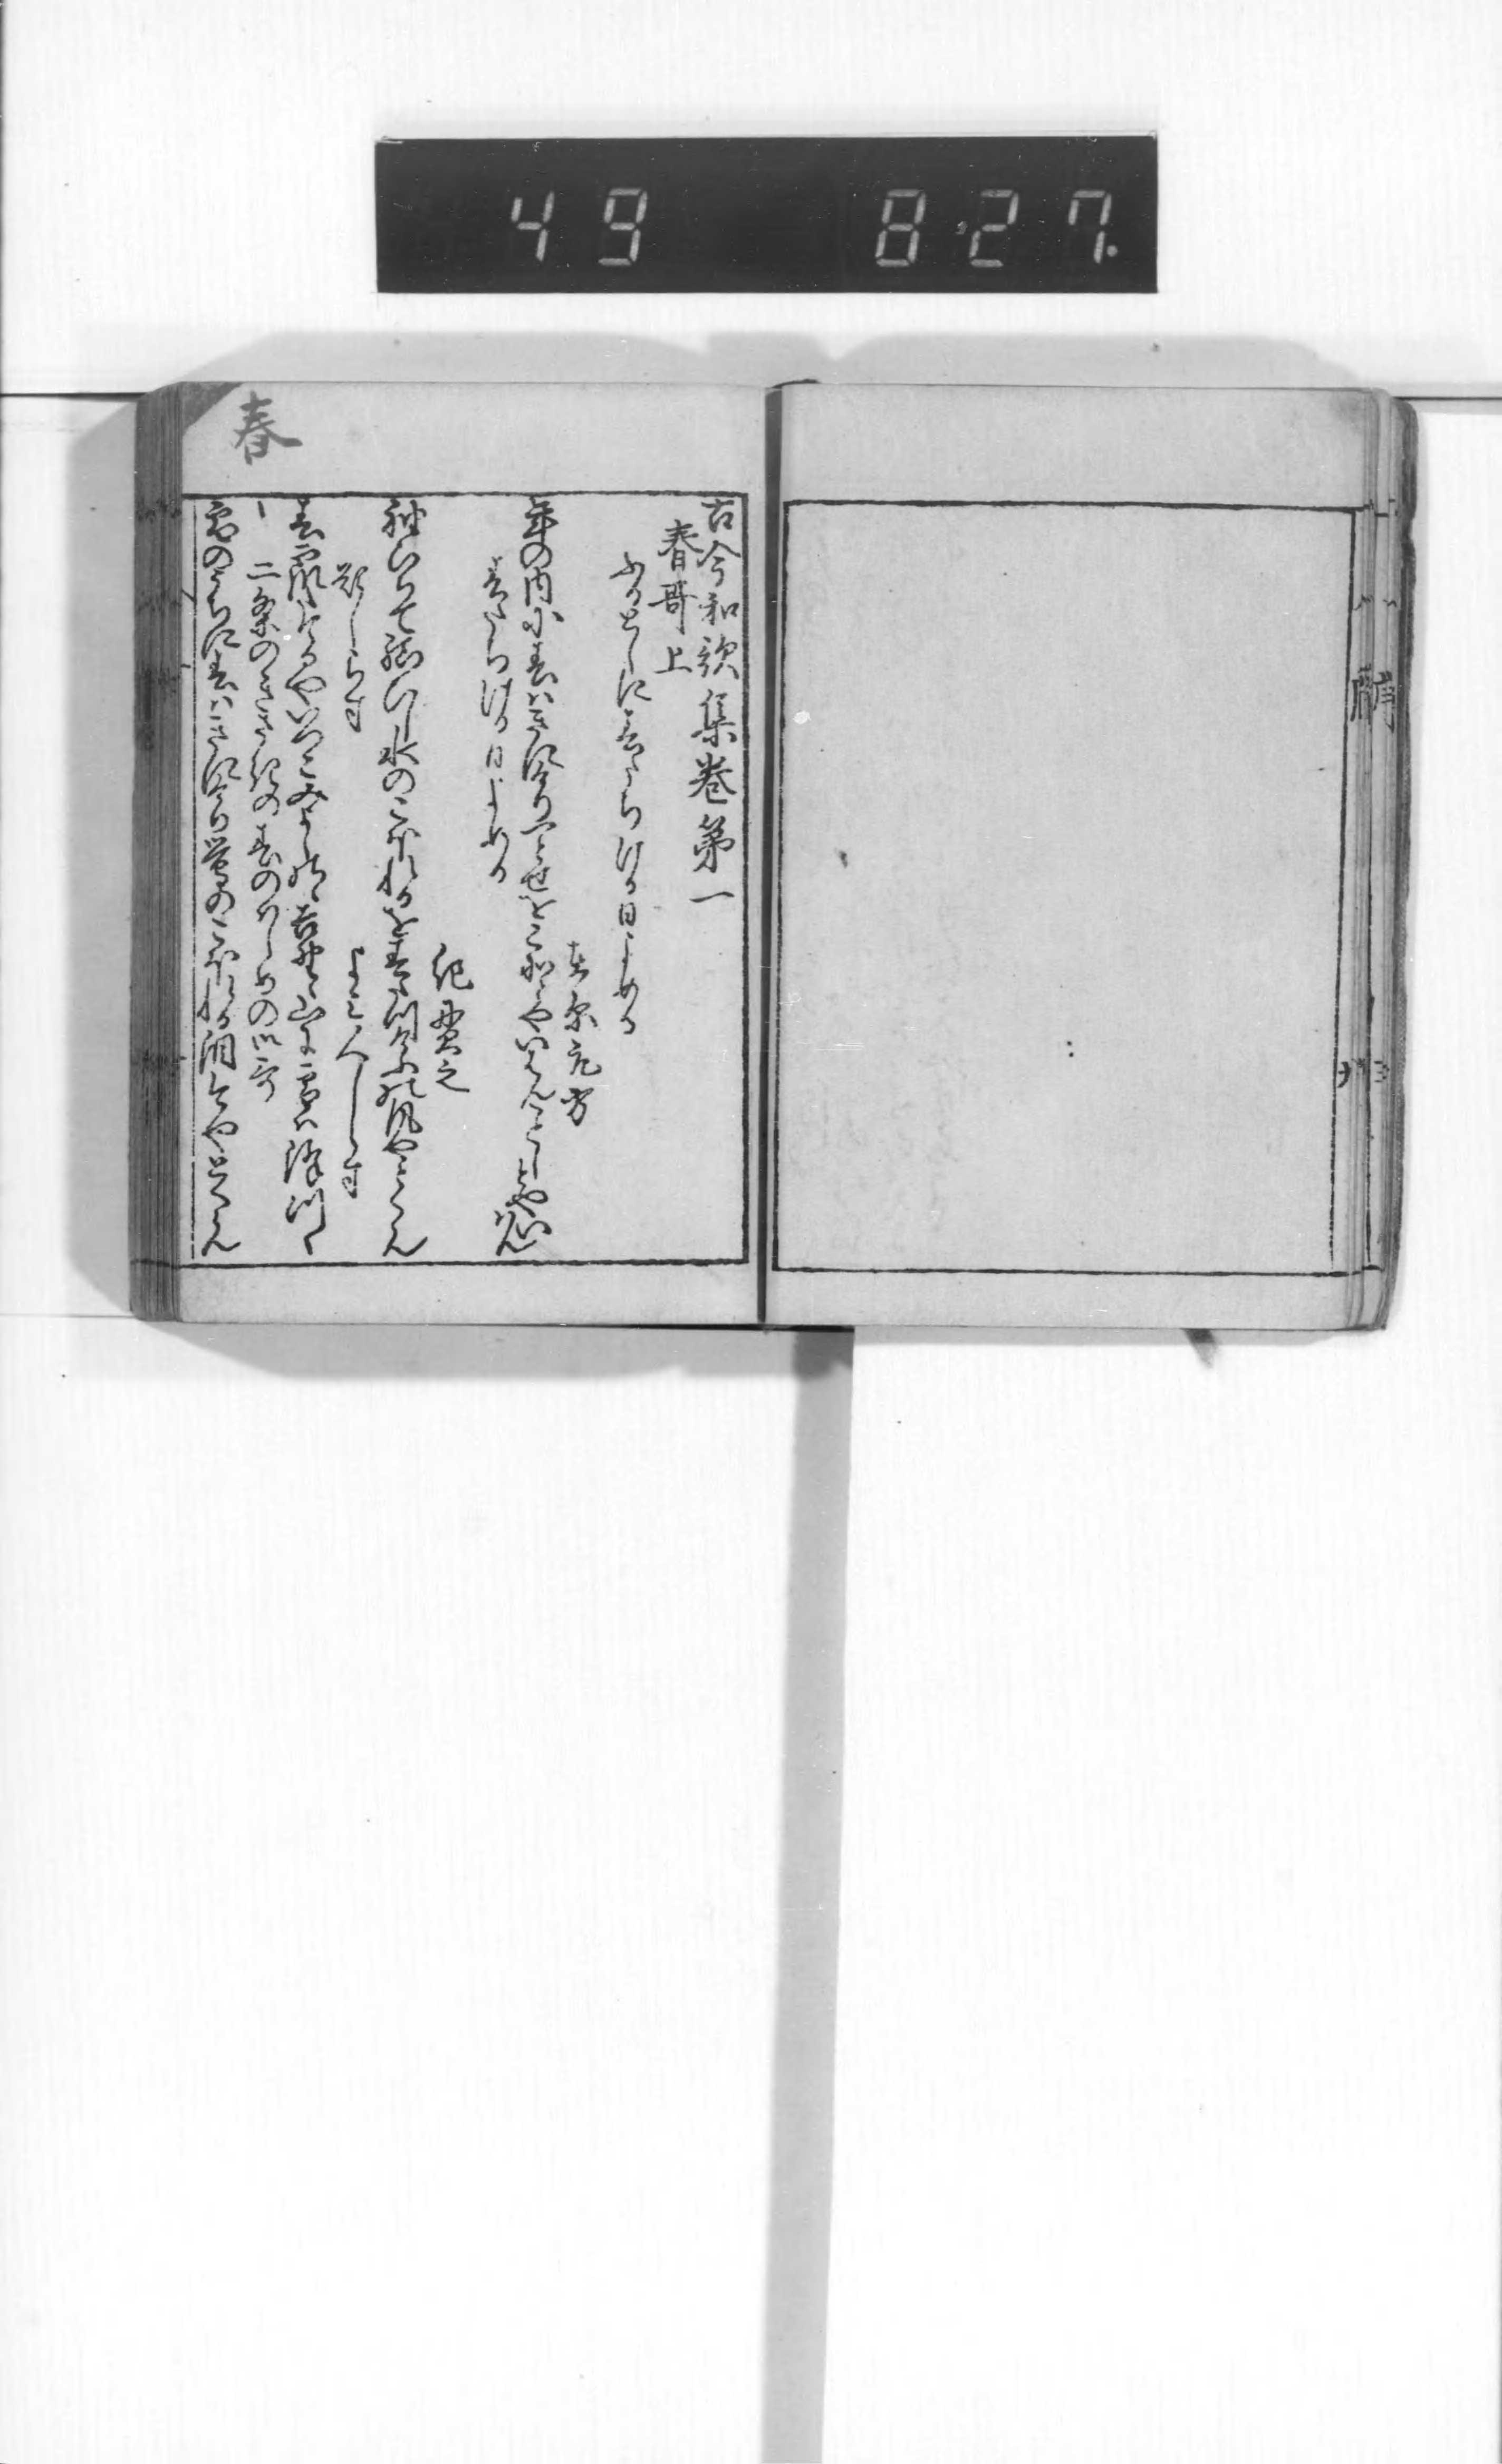 49 8.27.
春
古今和謌集巻第一
春哥上
ふるとしに春たちける日よめる
在原元方
年の内に春はきにけり一とせをこそとやいはんことしとやいはん
春たちける日よめる
紀貫之
袖ひちて結ひし水のこほれるを春立けふの風やとくらん
題しらす
よみ人しらす
春霞たてるやいつこみよしのゝ吉野ゝ山に雪は降つゝ
二条のきさきの春のはしめの御哥
雪のうちに春はきにけり鶯のこほれる涙今やとくらん